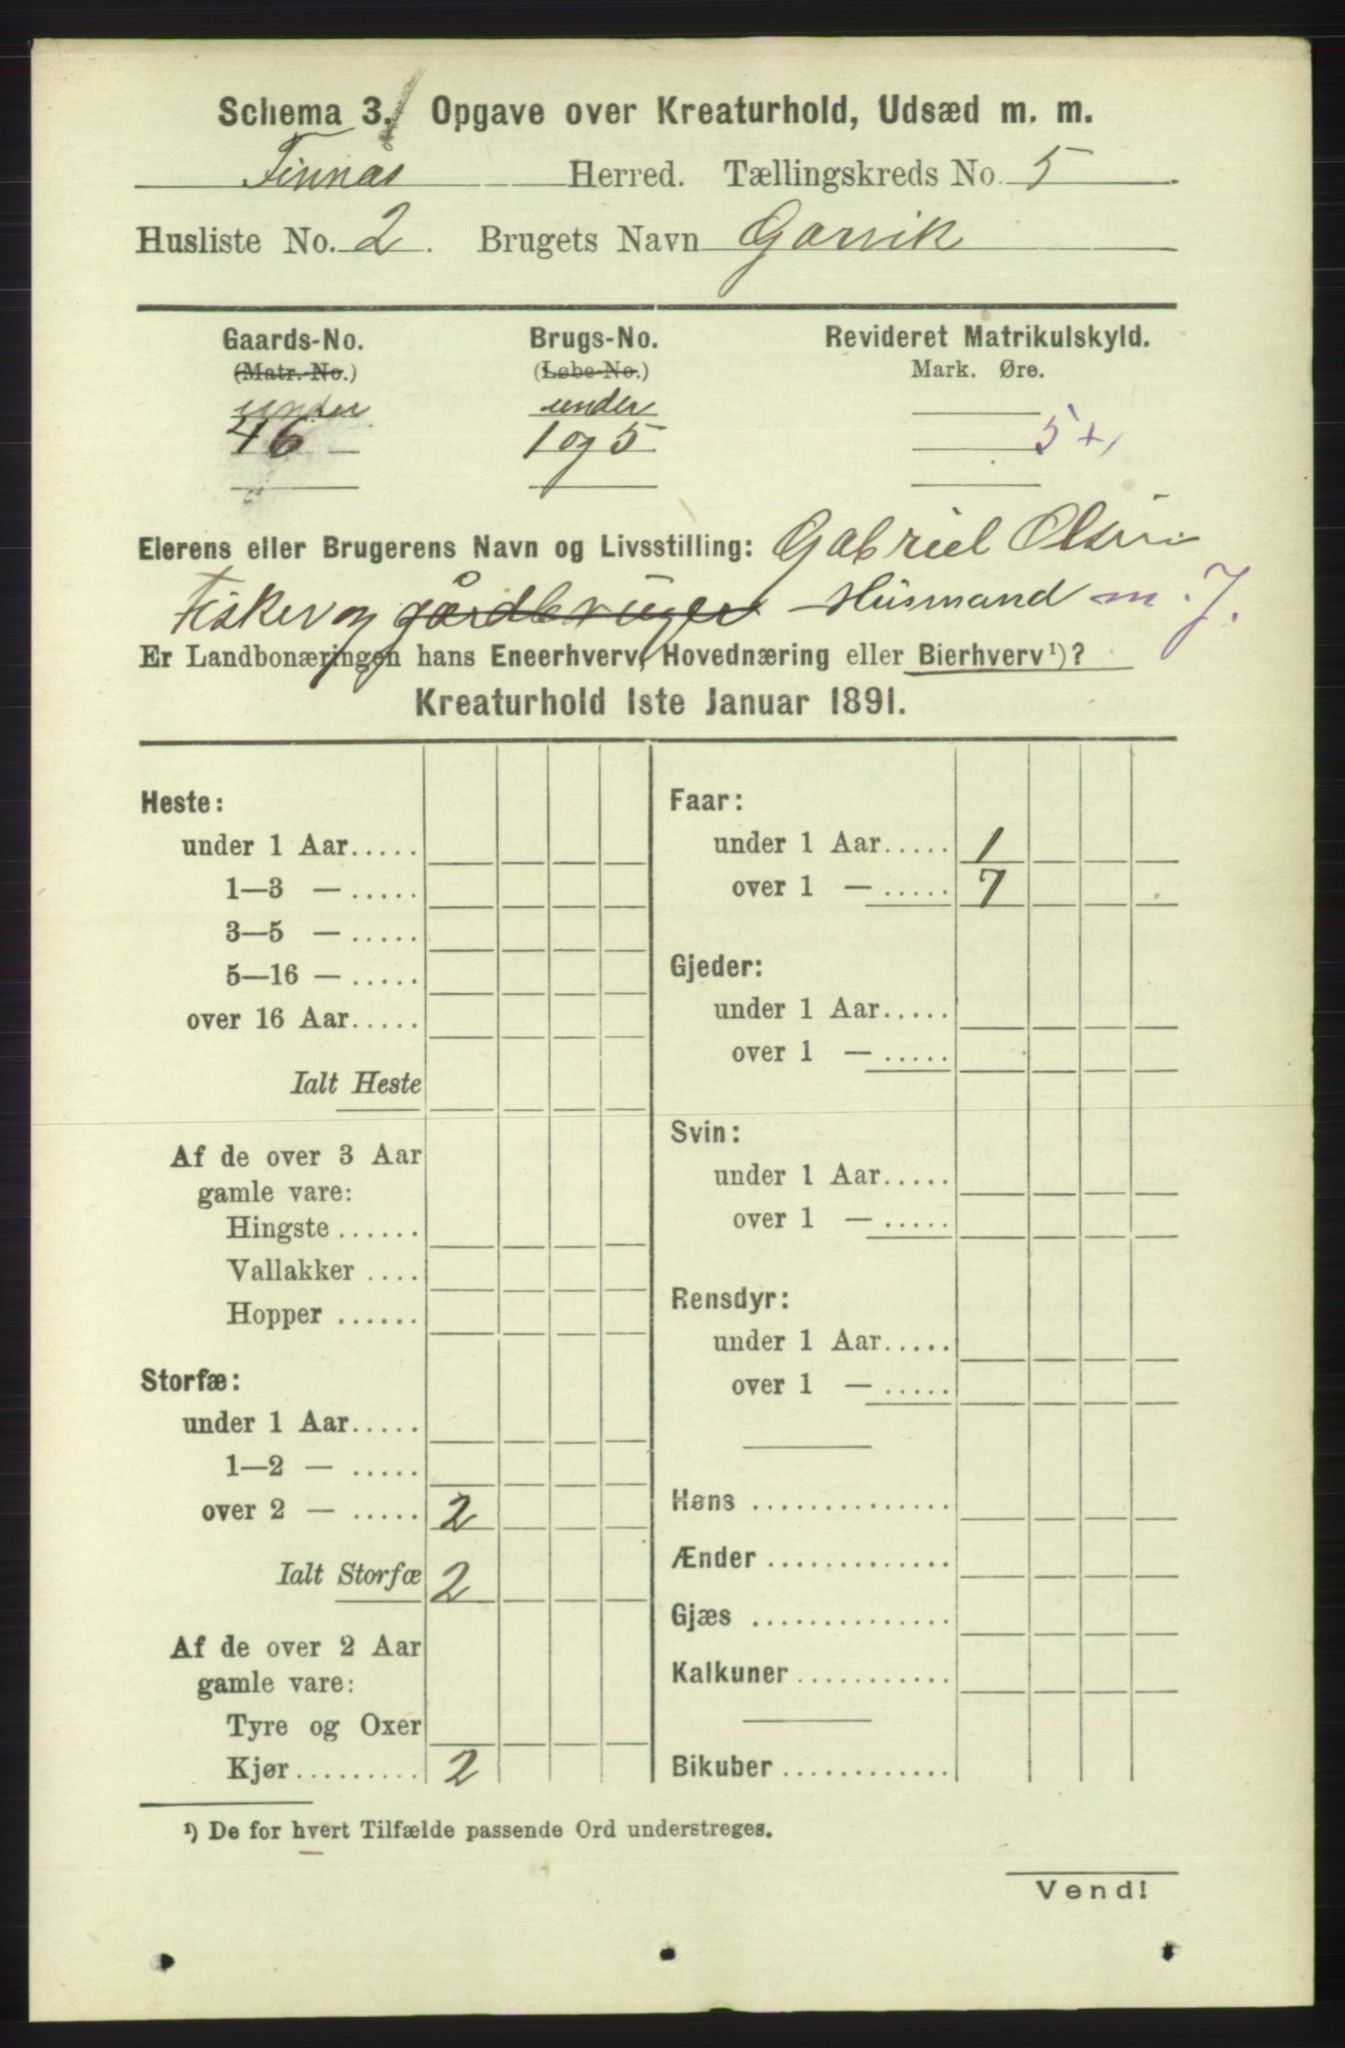 Schema 3. Opgave over Kreaturhold, Udsæd m. m.
Finnås Herred. Tællingskreds No. 5
Husliste No. 2. Brugets Navn Garvik
Gaards-No. Brugs-No. Revideret Matrikulskyld.
(Matr.-No.) (Løbe-No.) Mark. Øre.
under under
46 1 og 5 5+
Eierens eller Brugerens Navn og Livsstilling: Gabriel Olsen
Fisker og gårdbruger Husmand m. J.
Er Landbonæringen hans Eneerhverv, Hovednæring eller Bierhverv¹)?
Kreaturhold 1ste Januar 1891.
Heste:
under 1 Aar.....
1—3 — .....
3—5 — .....
5—16 — .....
over 16 Aar.....
Ialt Heste
Af de over 3 Aar
gamle vare:
Hingste ......
Vallakker ....
Hopper ......
Storfæ:
under 1 Aar.....
1—2 — .....
over 2 — ..... 2
Ialt Storfæ 2
Af de over 2 Aar
gamle vare:
Tyre og Oxer
Kjør......... 2
Faar:
under 1 Aar..... 1
over 1 — ..... 7
Gjeder:
under 1 Aar.....
over 1 — .....
Svin:
under 1 Aar.....
over 1 — .....
Rensdyr:
under 1 Aar.....
over 1 — .....
Høns ..............
Ænder .............
Gjæs ..............
Kalkuner...........
Bikuber ............
¹) De for hvert Tilfælde passende Ord understreges.
Vend!